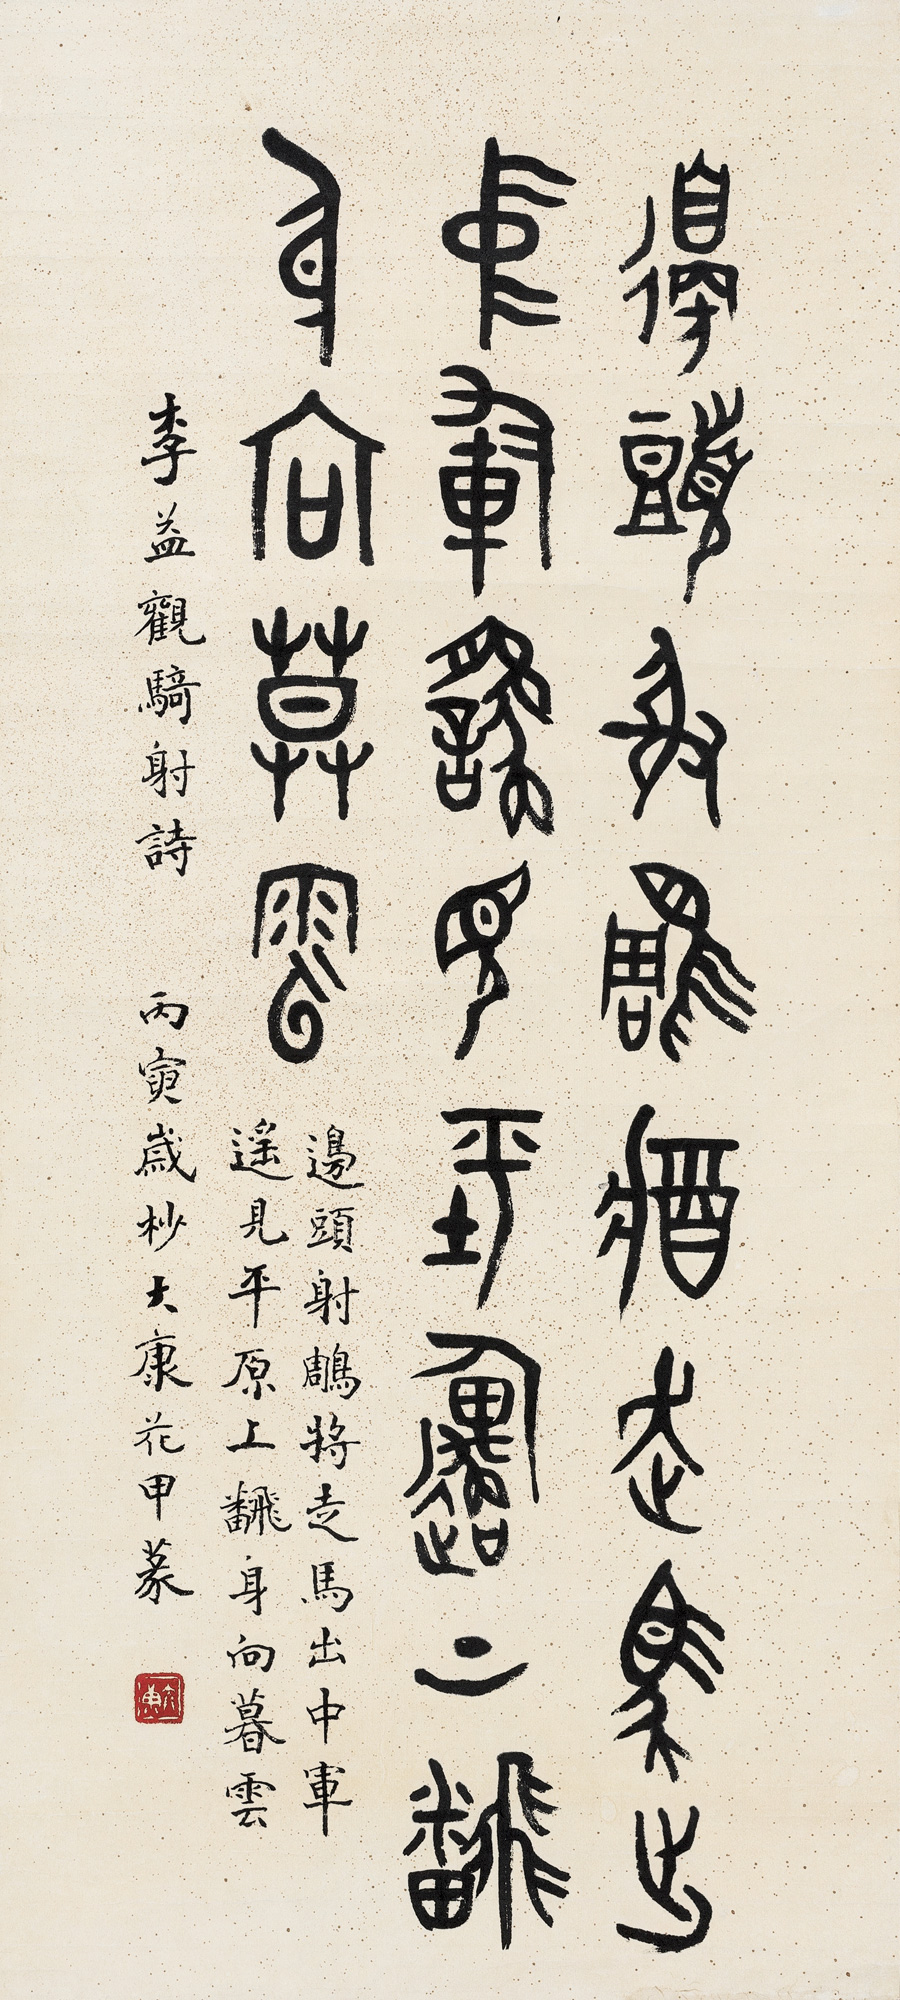 邊頭射鵰將走馬出
中軍遙見平原上翻
身向暮雲
邊頭射鵰將走馬出中軍
遙見平原上翻身向暮雲
李益觀騎射詩 丙寅歲杪大康花甲篆
大康